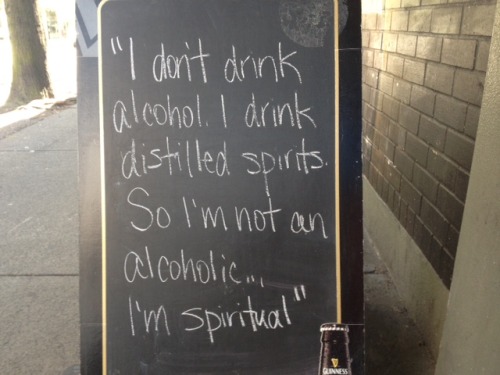 "I don't drink
alcohol. I drink
distilled spirits.
So I'm not an
alcoholic...
I'm spiritual"
GUINNESS